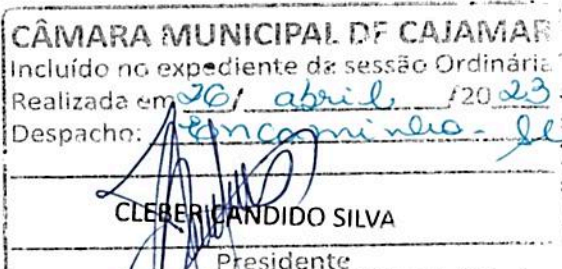 CÂMARA MUNICIPAL DE CAJAMAR
Incluído no expediente da sessão Ordinária
Realizada em 26/ abril /2023
Despacho: Encaminha-se
CLEBER CANDIDO SILVA
Presidente